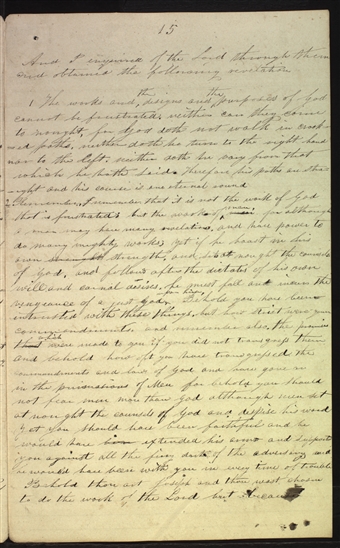 15
And I enquired of the Lord through them
and obtained the following revelation
1 The works and the designs and the purposes of God
cannot be frustrated, neither can they come
to nought, for God doth not walk in crook-
ed paths, neither doth he turn to the right hand
nor to the left; neither doth he vary from that
which he hath said. Therefore his paths are stra-
ight and his course is one eternal round
Remember, remember that it is not the work of God
that is frustrated but the work of men, for although
a man may have many revelations, and have power to
do many mighty works, yet if he boast in his
own strength, and sets at nought the councils
of God, and follows after the dictates of his own
will and carnal desires, he must fall and incur the
vengeance of a just God. Behold you have been
intrusted with these things, but how strict were your
commandments, and remember also, the promises
which were made to you if you did not transgress them
and behold how oft you have transgressed the
commandments and laws of God and have gone on
in the persuasions of Men for behold you should
not fear man more than God although men set
at nought the councels of God and despise his word
Yet you should have been faithful and he
would have extended his arm and supported
you against all the firey darts of the adversary and
he would have been with you in every time of trouble
Behold thou art Joseph and thou wast chosen
to do the work of the Lord but because